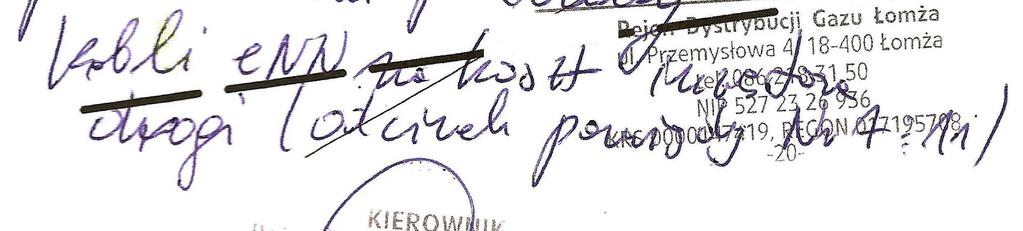 Rejon Dystrybucji Gazu Łomża
ul. Przemysłowa 4, 18-400 Łomża
tel. 086 218 31 50
NIP 527 23 26 936
-20-
kabli eNN na koszt inwestora
drogi (odcinek pomiędzy
KIEROWNIK